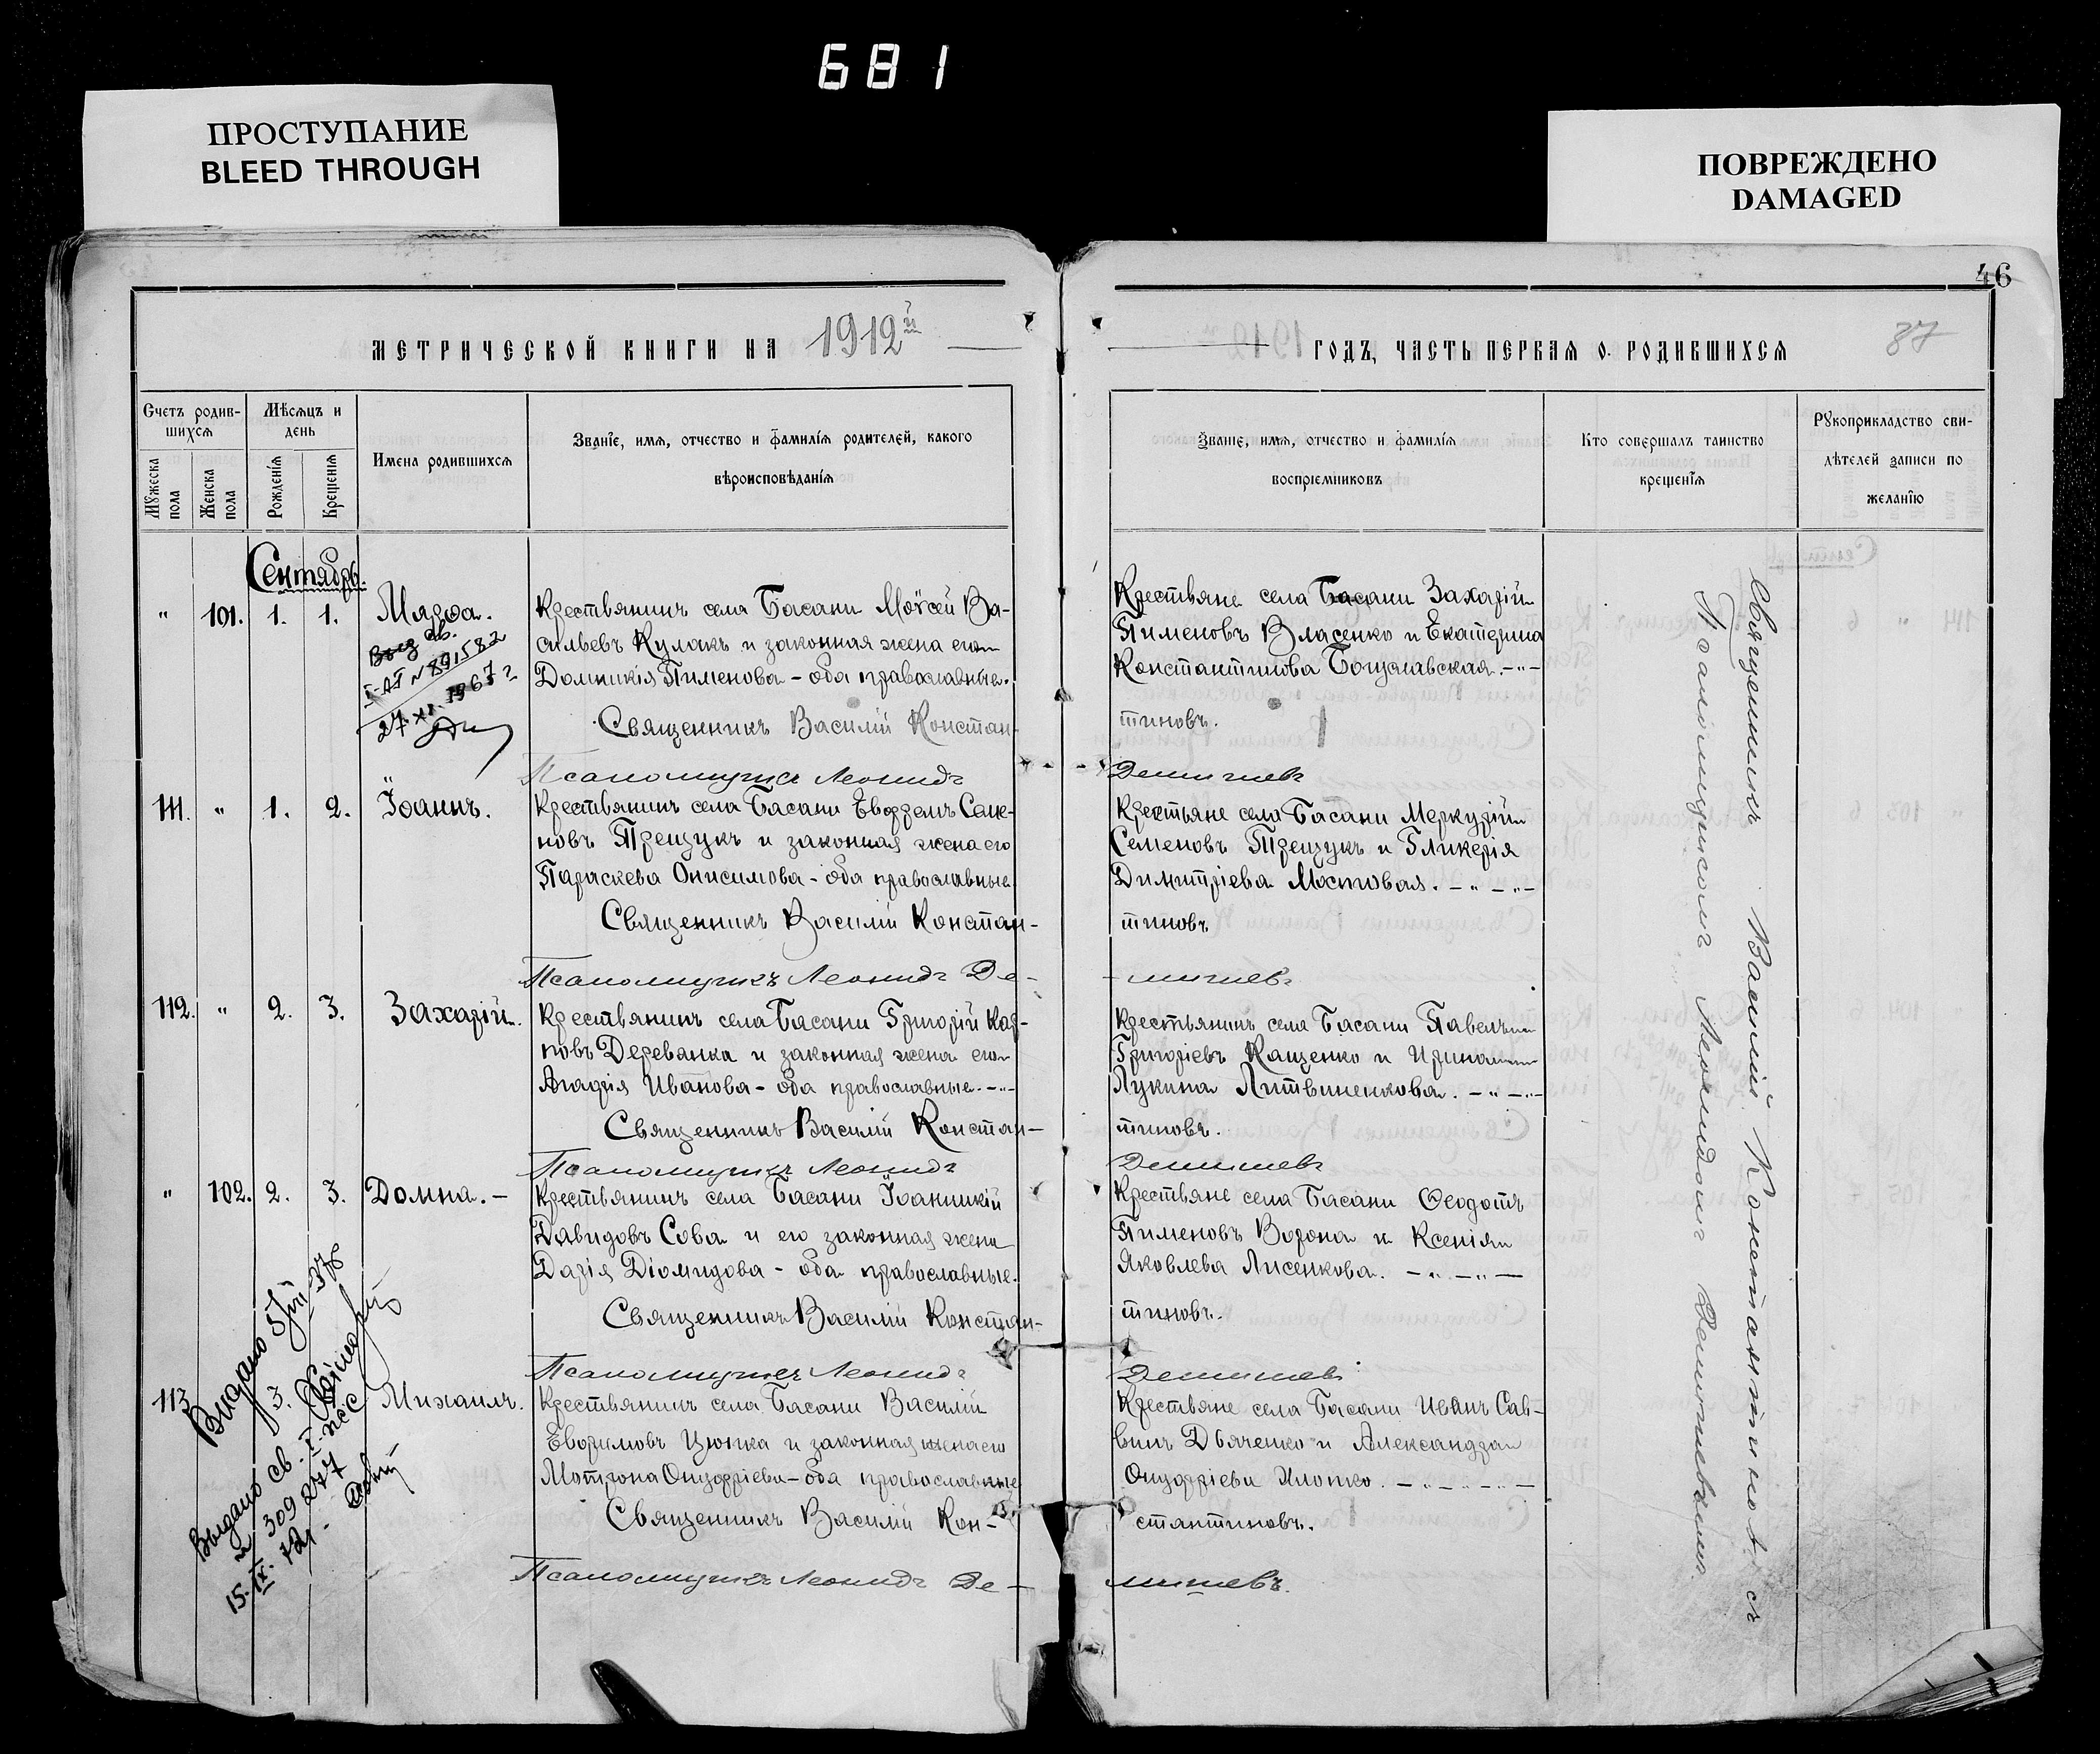 681
ПРОСТУПАНИЕ
BLEED THROUGH
ПОВРЕЖДЕНО
DAMAGED
46
87
МЕТРИЧЕСКОЙ КНИГИ НА 1912й
ГОДЪ, ЧАСТЬ ПЕРВАЯ О РОДИВШИХСЯ
Счетъ родив-
шихся
Мужеска пола
Женска пола
Мѣсяцъ и
день
Рожденія
Крещенія
Имена родившихся
Званіе, имя, отчество и фамилія родителей, какого
вѣроисповѣданія
Званіе, имя, отчество и фамилія
воспріемниковъ
Кто совершалъ таинство
крещенія
Рукоприкладство сви-
дѣтелей записи по
желанію
Сентябрь.
" 101. 1. 1. Марѳа.
Крестьянинъ села Басани Моѵсей Ва-
сильевъ Кулакъ и законная жена его
Домникія Пименова - оба православные.
Священникъ Василій Констан-
Псаломщикъ Леонидъ
Крестьяне села Басани Захарій
Пименовъ Власенко и Екатерина
Константинова Богуславская. - " -
тиновъ.
Демишевъ
св.
I-АГ № 891582
27. XI. 1967 г
111. " 1. 2. Іоаннъ.
Крестьянинъ села Басани Евфремъ Семе-
новъ Трещукъ и законная жена его
Параскева Онисимова - оба православные
Священникъ Василій Констан-
Псаломщикъ Леонидъ Де-
Крестьяне села Басани Меркурій
Семеновъ Трещукъ и Гликерія
Димитріева Мостовая. - " - " -
тиновъ
мишевъ
112. " 2. 3. Захарій.
Крестьянинъ села Басани Григорій Кар-
повъ Деревянка и законная жена его
Агафія Иванова - оба православные. - " -
Священникъ Василій Констан-
Псаломщикъ Леонидъ
Крестьянинъ села Басани Павелъ
Григоріевъ Кащенко и Ирина
Лукина Литвиненкова. - " - " -
тиновъ.
Демишевъ
" 102. 2. 3. Домна. -
Крестьянинъ села Басани Іоанникій
Давидовъ Сова и его законная жена
Дарія Діомидова - оба православные.
Священникъ Василій Констан-
Псаломщикъ Леонидъ
Крестьяне села Басани Ѳеодотъ
Пименовъ Ворона и Ксенія
Яковлева Лисенкова. - " - " -
тиновъ.
Демишевъ
113 3. Михаилъ.
Крестьянинъ села Басани Василій
Евфимовъ Цюпка и законная жена его
Мотрона Онуфріева - оба православные
Священникъ Василій Кон-
Псаломщикъ Леонидъ Де-
Крестьяне села Басани Иванъ Сав-
винъ Дьяченко и Александра
Онуфріева Хлопко. - " - " - " -
стантиновъ.
мишевъ.
Видано
Выдано св.
№ 309277
15. IX.
Священникъ Василій Константиновъ съ
Псаломщикомъ Леонидомъ Демишевымъ.